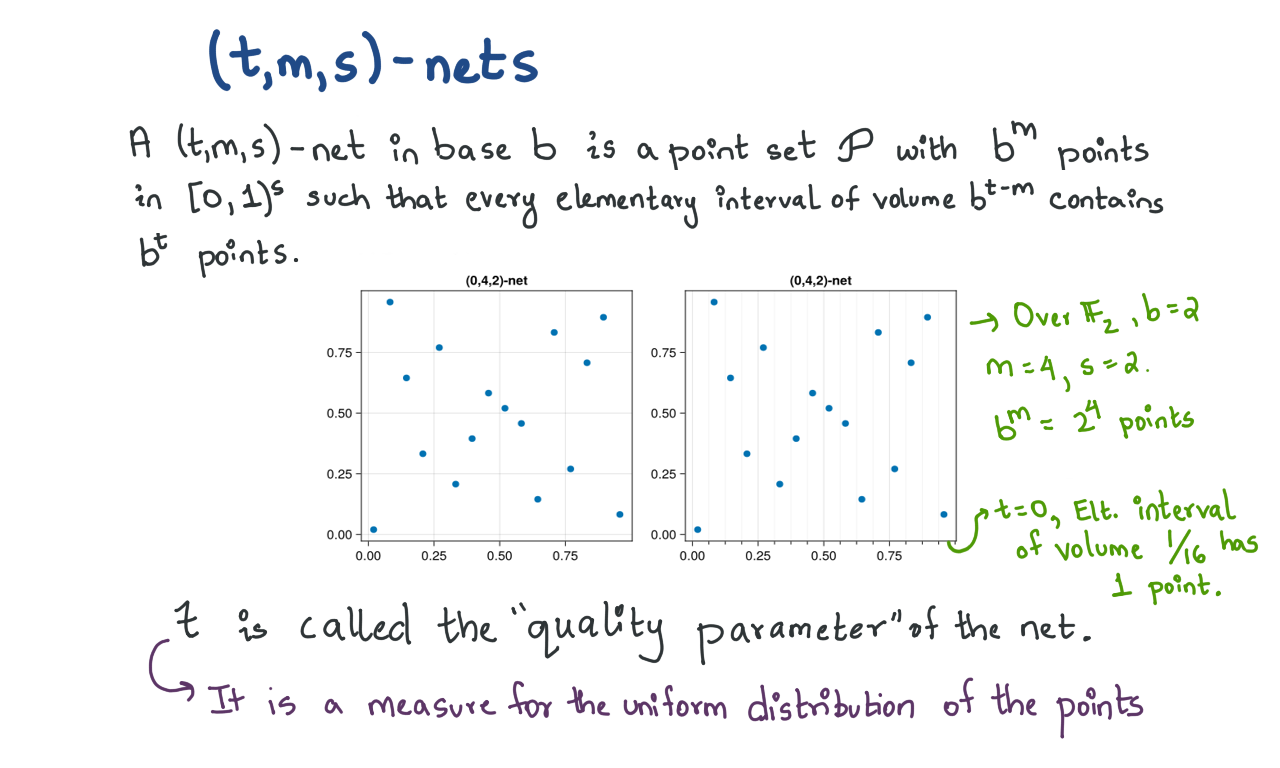 (t,m,s)-nets
A (t,m,s)-net in base b is a point set P with b^m points
in [0,1)^s such that every elementary interval of volume b^{t-m} contains
b^t points.
(0,4,2)-net
0.75
0.50
0.25
0.00
0.00 0.25 0.50 0.75
(0,4,2)-net
0.75
0.50
0.25
0.00
0.00 0.25 0.50 0.75
→ Over 𝔽_2, b=2
m=4, s=2.
b^m = 2^4 points
t=0, Elt. interval
of volume 1/16 has
1 point.
t is called the "quality parameter" of the net.
It is a measure for the uniform distribution of the points